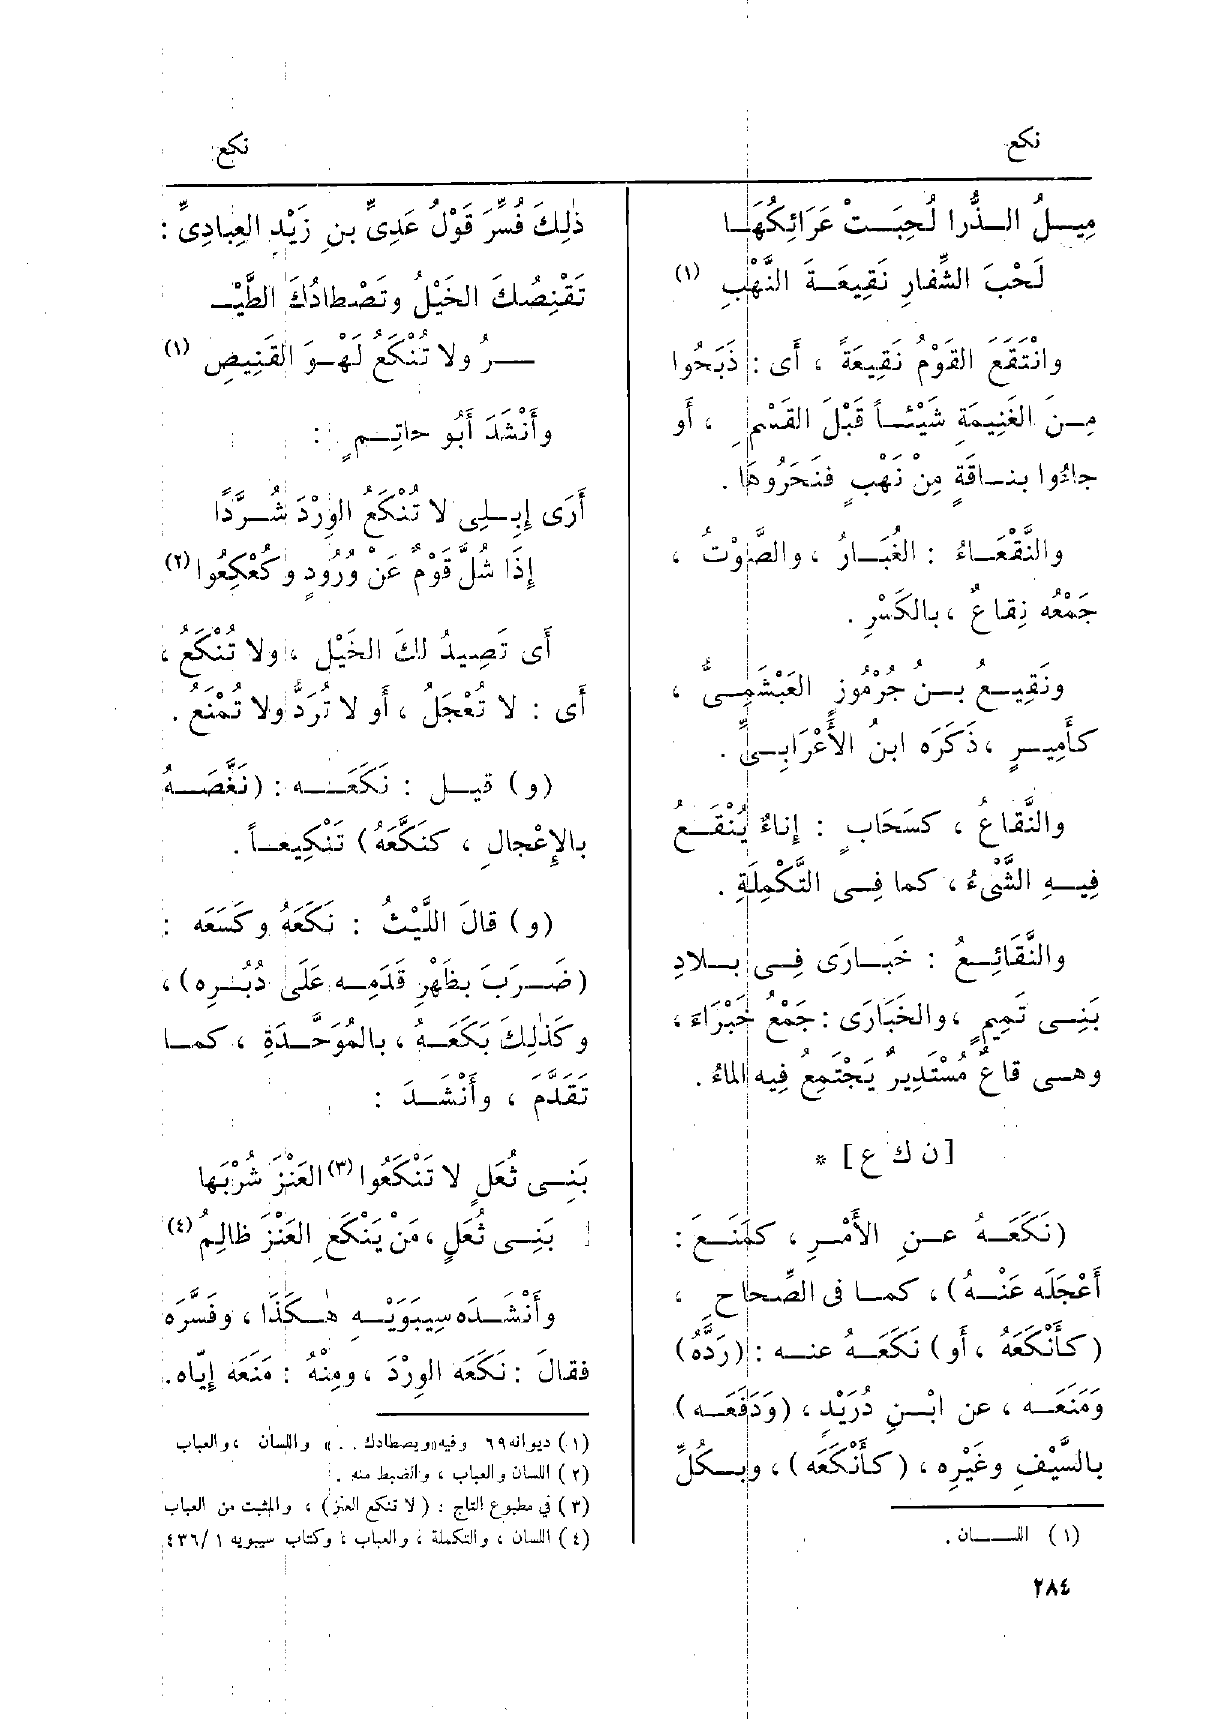 نكع
نكع
مِيــلُ الــذُّرا لُحِبَــتْ عَرَائِكُهَــا
لَحْبَ الشِّفارِ نَقِيعَــةَ النَّهْبِ (١)
وانْتَقَعَ القَوْمُ نَقِيعَةً ، أَى : ذَبَحُوا
مِــنَ الغَنِيمَةِ شَيْئــاً قَبْلَ القَسْمِ ، أَو
جاءُوا بنــاقَةٍ مِنْ نَهْبٍ فنَحَرُوهَا .
والنَّقْعَــاءُ : الغُبَــارُ ، والصَّوْتُ ،
جَمْعُه نِقاعٌ ، بالكَسْرِ .
ونَقِيــعُ بــنُ جُرْمُوزٍ العَبْشَمِــىُّ ،
كأَمِيــرٍ ، ذَكَرَه ابنُ الأَعْرَابِــىِّ .
والنَّقاعُ ، كسَحَابٍ : إِناءٌ يُنْقَــعُ
فِيــهِ الشَّىْءُ ، كما فِــى التَّكْمِلَةِ .
والنَّقَائِــعُ : خَبَــارَى فِــى بــلادِ
بَنِــى تَمِيمٍ ، والخَبَارَى : جَمْعُ خَبْرَاءَ ،
وهــى قاعٌ مُسْتَدِيرٌ يَجْتَمِعُ فِيه الماءُ .
[ ن ك ع ] *
(نَكَعَــهُ عــنِ الأَمْــرِ ، كمَنَــعَ :
أَعْجَلَه عَنْــهُ) ، كمــا فى الصِّحاحِ ،
(كأَنْكَعَهُ ، أَو) نَكَعَــهُ عنــه : (رَدَّهُ)
ومَنَعَــه ، عن ابْــنِ دُرَيْدٍ ، (ودَفَعَــه)
بالسَّيْفِ وغَيْرِه ، (كأَنْكَعَه) ، وبــكُلِّ
(١) اللســان .
٢٨٤
ذٰلِكَ فُسِّرَ قَوْلُ عَدِىِّ بنِ زَيْدٍ العِبادِىِّ :
تَقْنِصُكَ الخَيْلُ وتَصْطادُكَ الطَّيْــ
ــرُ ولا تُنْكَعُ لَهْــوَ القَنِيصِ (١)
وأَنْشَدَ أَبُو حاتِــمٍ :
أَرَى إِبِــلِى لا تُنْكَعُ الوِرْدَ شُــرَّدًا
إِذَا شُلَّ قَوْمٌ عَنْ وُرُودٍ وكُعْكِعُوا (٢)
أَى تَصِيدُ لكَ الخَيْلُ ، ولا تُنْكَعُ ،
أَى : لا تُعْجَلُ ، أَو لا تُرَدُّ ولا تُمْنَعُ .
(و) قيــل : نَكَعَــه : (نَغَّصَــهُ
بالإِعْجالِ ، كنَكَّعَهُ) تَنْكِيعــاً .
(و) قالَ اللَّيْثُ : نَكَعَهُ وكَسَعَه :
(ضَــرَبَ بظَهْرِ قَدَمِــه عَلَى دُبُــرِه) ،
وكَذٰلِكَ بَكَعَــهُ ، بالمُوَحَّــدَةِ ، كمــا
تَقَدَّمَ ، وأَنْشَــدَ :
بَنِــى ثُعَلٍ لا تَنْكَعُوا (٣) العَنْزَ شُرْبَها
بَنِــى ثُعَلٍ ، مَنْ يَنْكَعِ العَنْزَ ظالِمُ (٤)
وأَنْشَــدَه سِيبَوَيْــهِ هٰــكَذَا ، وفَسَّرَه
فقالَ : نَكَعَه الوِرْدَ ، ومِنْهُ : مَنَعَه إِيّاه.
(١) ديوانه ٦٩ وفيه «ويصطادك . . » واللسان ، والعباب
(٢) اللسان والعباب ، والضبط منه .
(٣) فى مطبوع التاج : (لا تنكع العنز) ، والمثبت من العباب
(٤) اللسان ، والتكملة ، والعباب ، وكتاب سيبويه ١ /٤٣٦